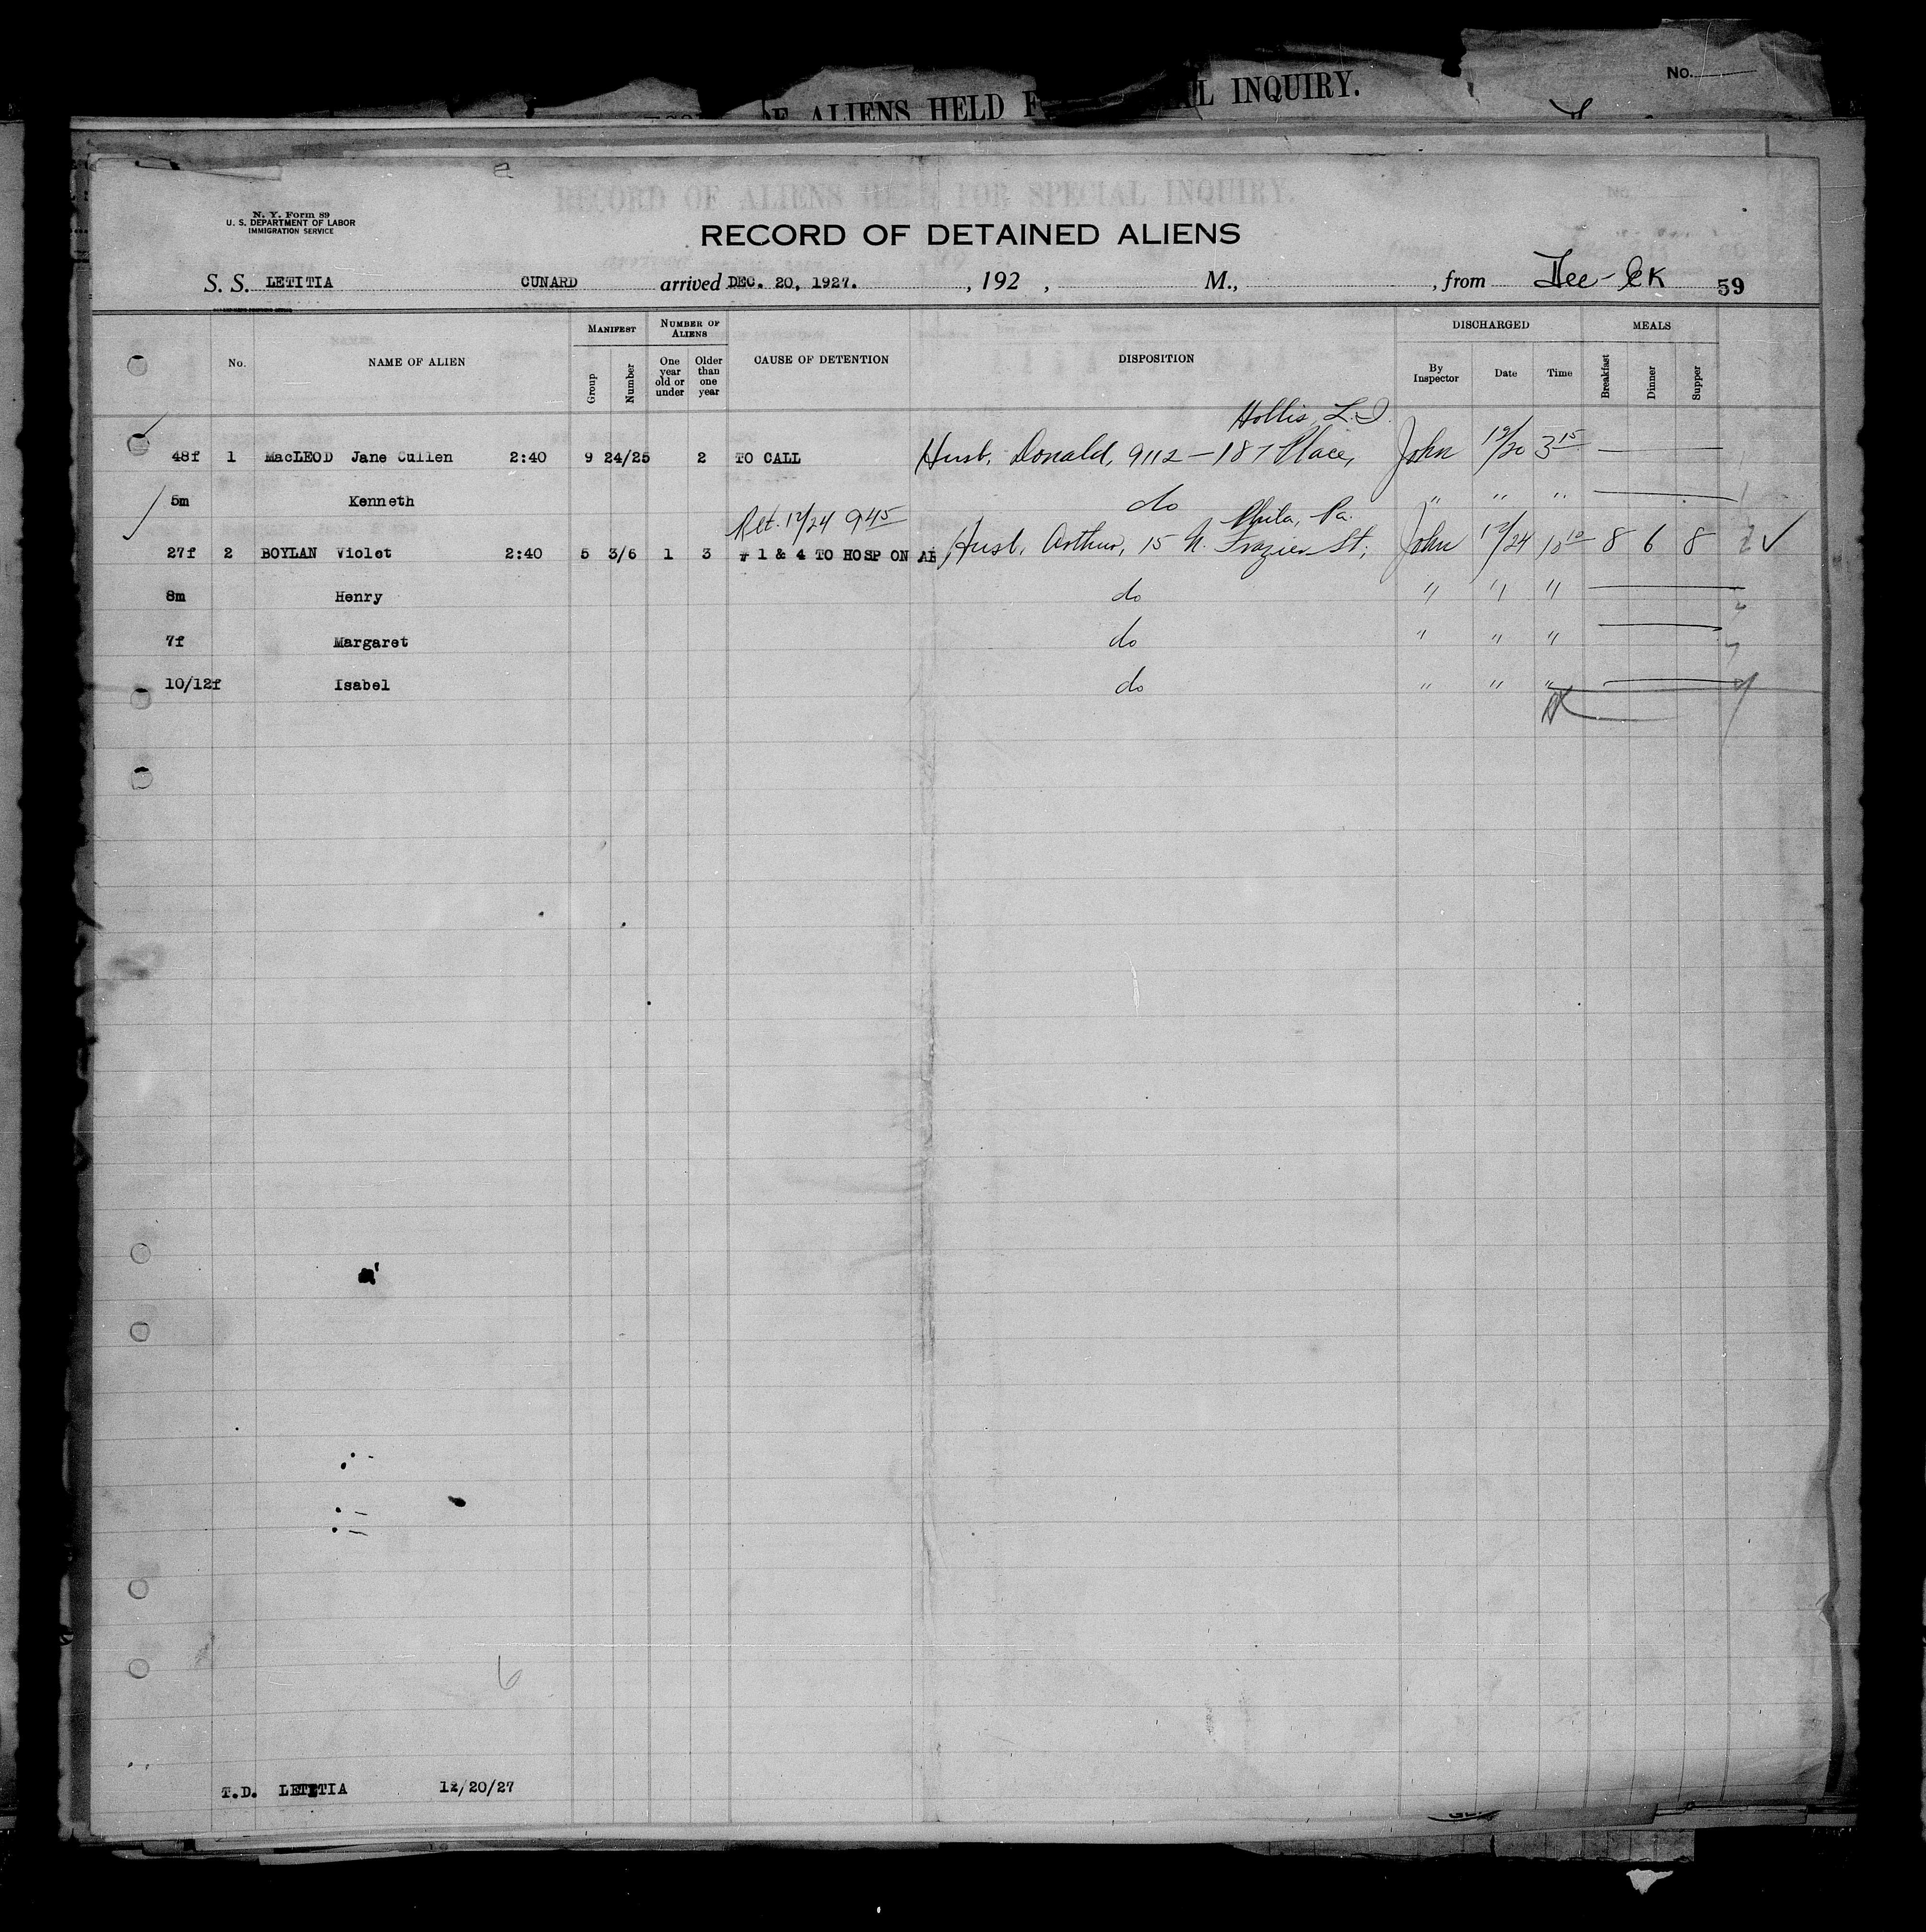 OF ALIENS HELD F L INQUIRY.
No.
RECORD OF ALIENS HELD FOR SPECIAL INQUIRY.
No.
N. Y. Form 89
U. S. DEPARTMENT OF LABOR
IMMIGRATION SERVICE
RECORD OF DETAINED ALIENS
S. S. LETITIA CUNARD arrived DEC. 20, 1927. , 192 , M., , from 59
No. NAME OF ALIEN MANIFEST Group Number NUMBER OF ALIENS One year old or under Older than one year CAUSE OF DETENTION DISPOSITION DISCHARGED By Inspector Date Time MEALS Breakfast Dinner Supper
Hollis, L.I.
48f 1 MacLEOD Jane Cullen 2:40 9 24/25 2 TO CALL Husb, Donald, 9112 - 187 Place, John 12/20 3 15
5m Kenneth do " " "
Ret. 12/24 9 45 Phila, Pa.
27f 2 BOYLAN Violet 2:40 5 3/6 1 3 # 1 & 4 TO HOSP ON AR Husb, Arthur, 15 N. Frazier St; John 12/24 10 10 8 6 8
8m Henry do " " "
7f Margaret do " " "
10/12f Isabel do " " "
6
T.D. LETITIA 12/20/27